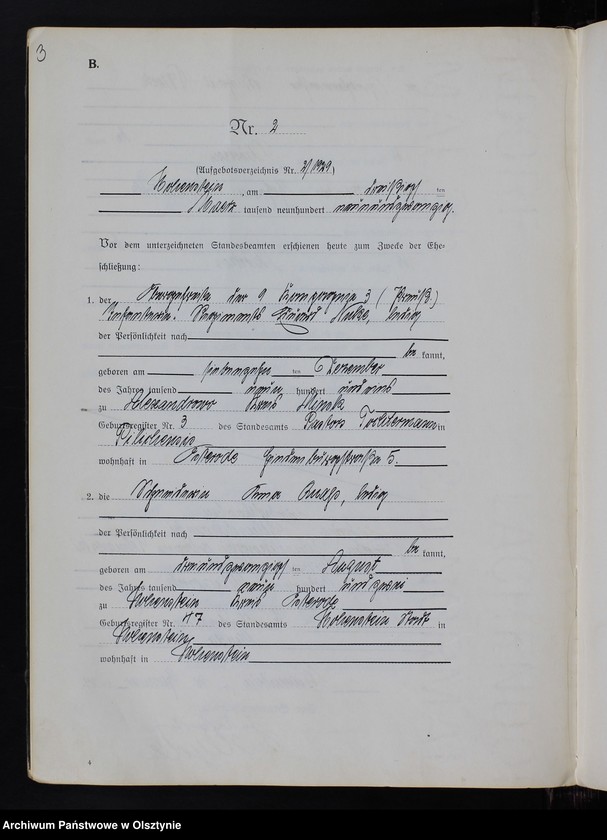 3
B.
Nr. 2
(Aufgebotsverzeichnis Nr. 2/1929)
Hohenstein, am dreißigsten
Maerz tausend neunhundert neunundzwanzig.
Vor dem unterzeichneten Standesbeamten erschienen heute zum Zwecke der Ehe=
schließung:
1. der Obergefreite der 9 Kompagnie 3 (Preuß.)
Infanterie. Regiments Hulke, ledig
der Persönlichkeit nach
be kannt,
geboren am siebenzehnten Dezember
des Jahres tausend neun hundert und eins
zu Alexandrowo Kreis
Geburtsregister Nr. 3 des Standesamts Pastors in
wohnhaft in Osterode Hindenburgstraße 5.
2. die Schneiderin Anna ledig
der Persönlichkeit nach
be kannt,
geboren am dreiundzwanzigsten August
des Jahres tausend neun hundert und zwei
zu Hohenstein Kreis Osterode
Geburtsregister Nr. 77 des Standesamts Hohenstein Stadt in
Hohenstein
wohnhaft in Hohenstein
4
Archiwum Państwowe w Olsztynie